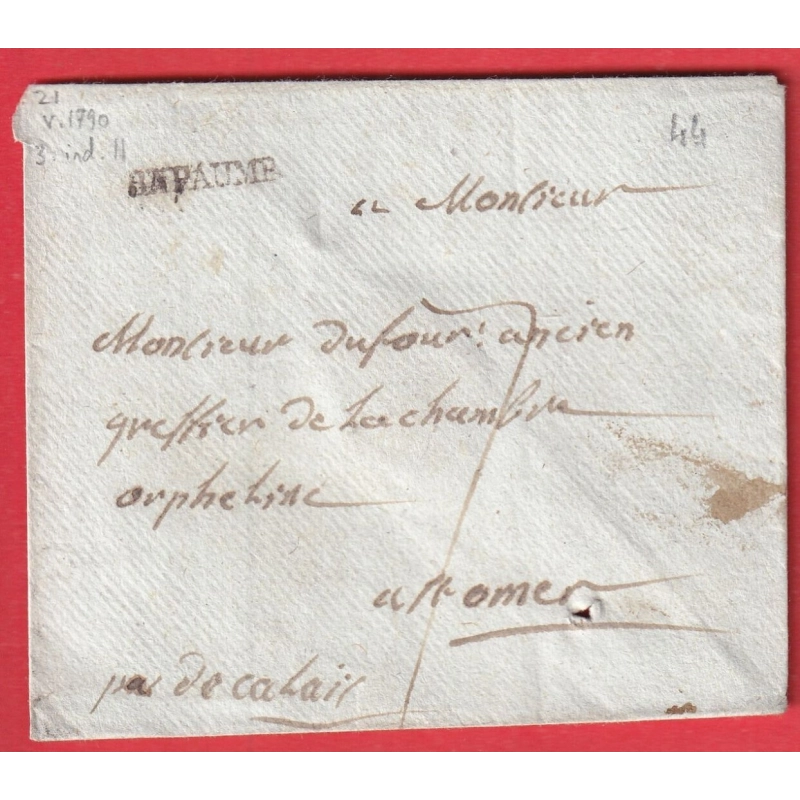 21
v. 1790
3. ind. 11
44
BAPAUME
a Monsieur
Monsieur dufour: ancien
greffier de La chambre
orpheline
a st omer
pas de calais
7